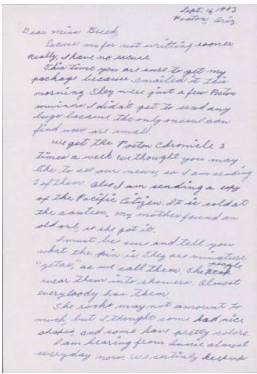 Sept. 16, 1943
Poston, Ariz.
Dear Miss Breed,
Excuse me for not writting sooner
Really, I have no excuse
This time you are sure to get my
package because I mailed it this
morning. They were just a few Poston
souvenirs I didn't get to send any
bugs because the only ones I can
find now are small.
We get the Poston Chronicle 3
times a week we thought you may
like to see our news, so I am sending
of them. Also I am sending a copy
of the Pacific Citizen. It is sold at
the canteen, my mother found an
old one, so she got it.
I must be sure and tell you
what the pin is they are miniature
"getas," as we call them. The people
wear them into showers. Almost
everybody has them.
The rocks may not amount to
much, but I thought some had nice
shapes, and some have pretty colors.
I am hearing from almost
everyday now. We certinly keep up